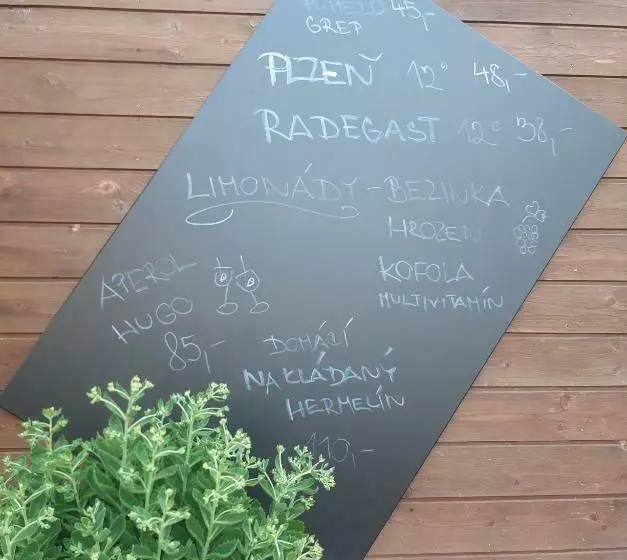 POMELO 45,-
GREP
PLZEŇ 12° 48,-
RADEGAST 12° 38,-
LIMONÁDY - BEZINKA
HROZEN
KOFOLA
MULTIVITAMÍN
APEROL
HUGO
85,-
DOMÁCÍ
NAKLÁDANÝ
HERMELÍN
110,-